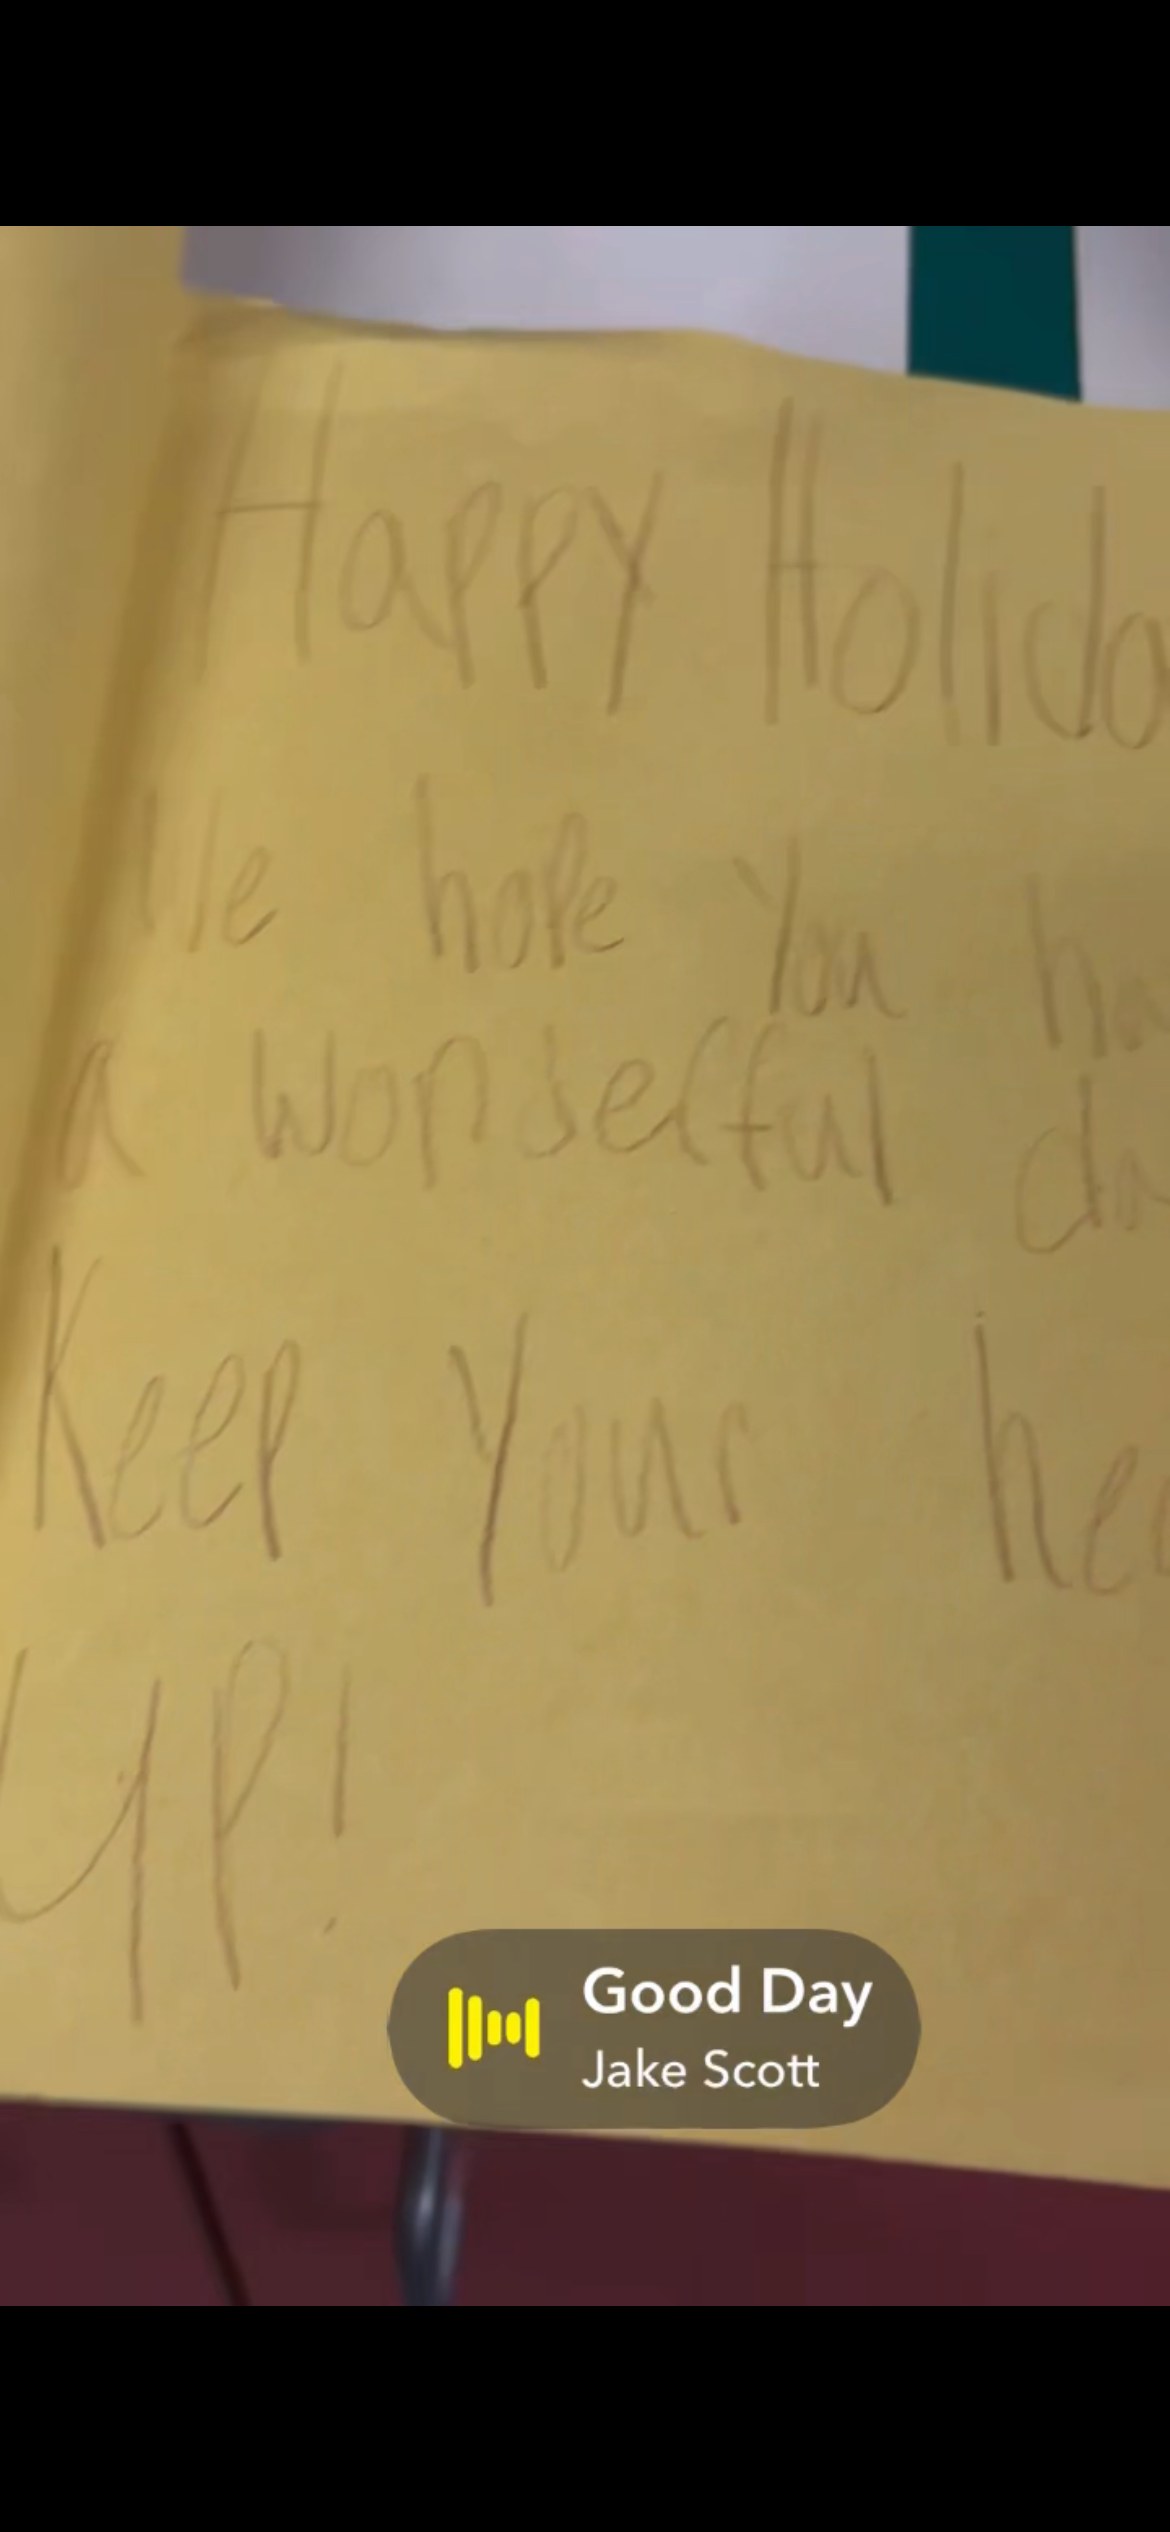 Happy Holida
We hope you ha
a wonderful da
Keep Your hea
UP!
Good Day
Jake Scott